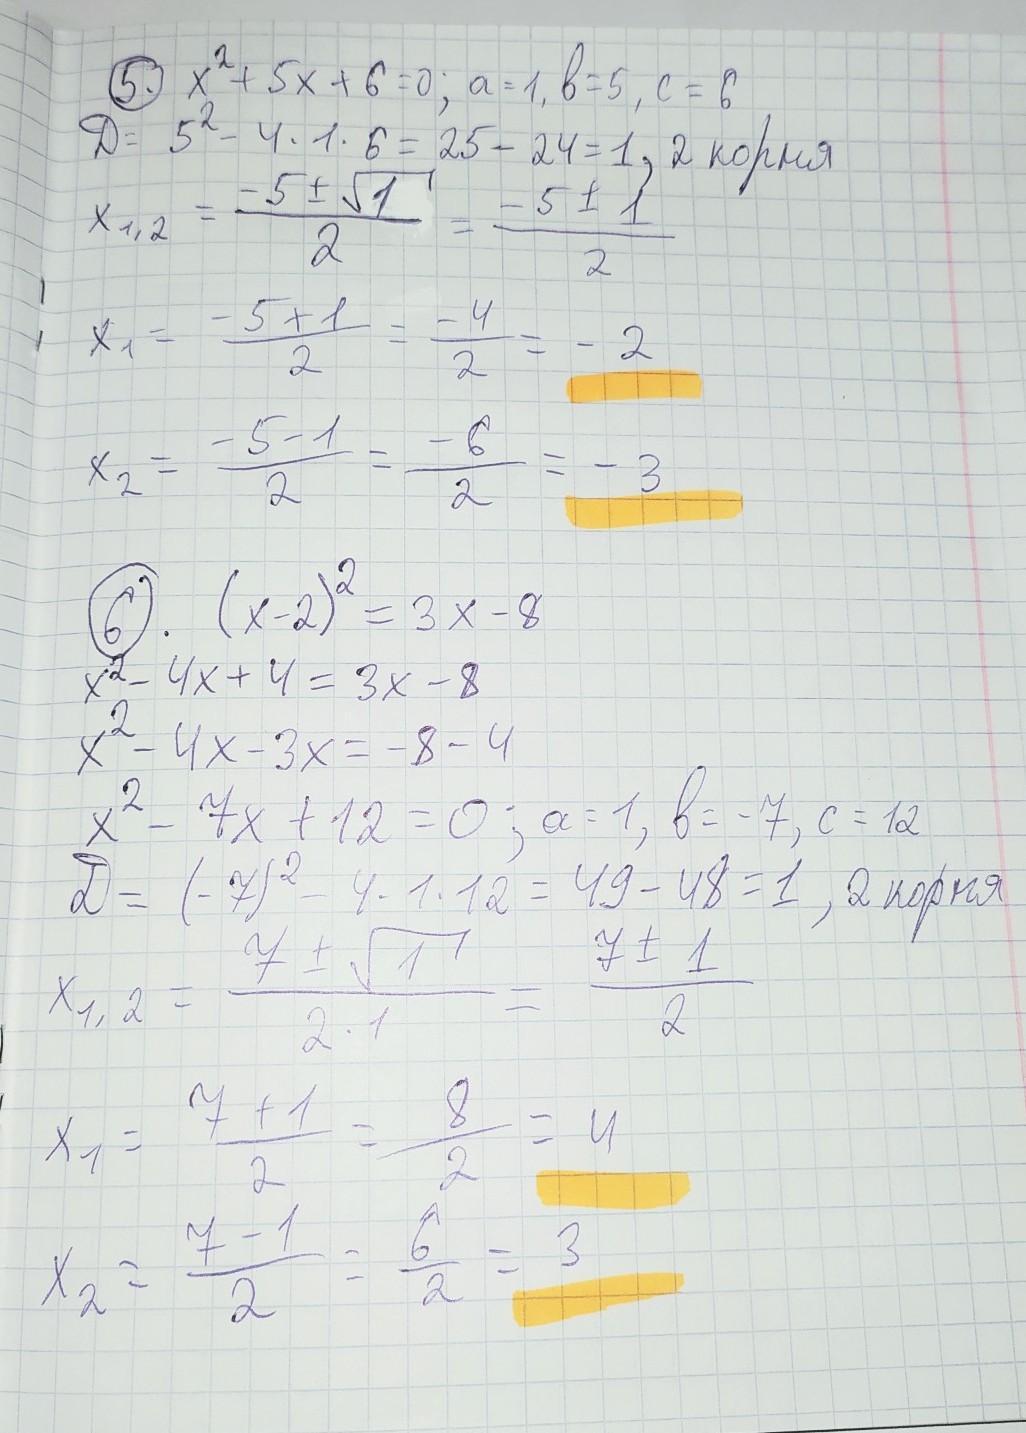 5. x² + 5x + 6 = 0; a = 1, b = 5, c = 6
D = 5² - 4 · 1 · 6 = 25 - 24 = 1, 2 корня
x₁,₂ = (-5 ± √1)/2 = (-5 ± 1)/2
x₁ = (-5 + 1)/2 = -4/2 = -2
x₂ = (-5 - 1)/2 = -6/2 = -3
6. (x - 2)² = 3x - 8
x² - 4x + 4 = 3x - 8
x² - 4x - 3x = -8 - 4
x² - 7x + 12 = 0; a = 1, b = -7, c = 12
D = (-7)² - 4 · 1 · 12 = 49 - 48 = 1, 2 корня
x₁,₂ = (7 ± √1)/(2 · 1) = (7 ± 1)/2
x₁ = (7 + 1)/2 = 8/2 = 4
x₂ = (7 - 1)/2 = 6/2 = 3